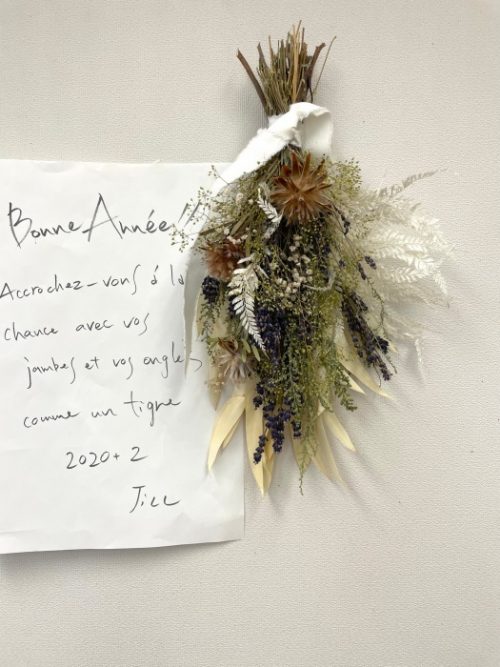 Bonne Année!!
Accrochez-vous à la
chance avec vos
jambes et vos ongles
comme un tigre
2020+2
Jill